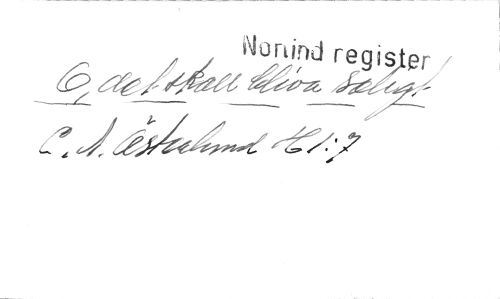 Nonind register
O, det skall bliva saligt
C. A. Österlund H 1:7